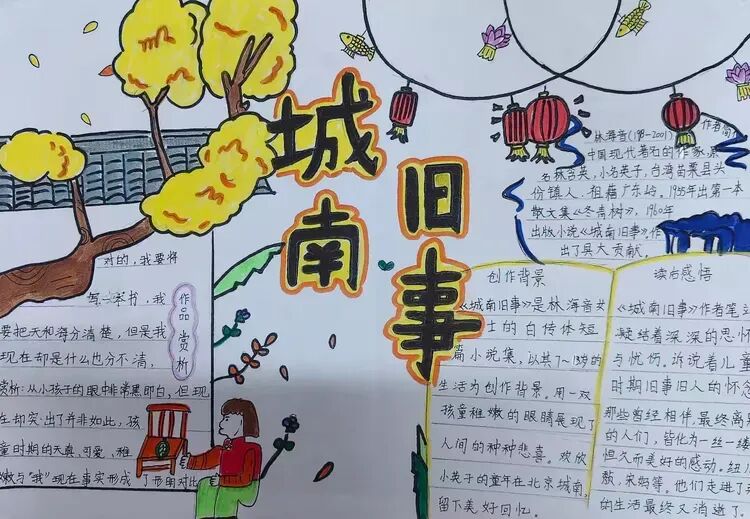 城南
旧事
作者简
林海音(1918-2001)
中国现代著名的作家,原
名林含英,小名英子,台湾苗栗县头
份镇人,祖籍广东岭。1955年出第一本
散文集《冬青树》,1960年
出版小说《城南旧事》作
出了具大贡献。
对的,我要将
写一本书,我
要把天和海分清楚,但是我
现在却是什么也分不清,
作品赏析
赏析:从小孩子的眼中非常黑即白,但现
在却突出了并非如此,孩
童时期的天真、可爱、稚
嫩与"我"现在事实形成了形明对比
创作背景
《城南旧事》是林海音女
士的自传体短
篇小说集,以其7~13岁的
生活为创作背景。用一双
孩童稚嫩的眼睛展现了
人间的种种悲喜。欢欣
小英子的童年在北京城南,
留下美好回忆。
读后感悟
《城南旧事》作者笔立
凝结着深深的思怀
与忧伤。诉说着儿童
时期旧事旧人的怀念
那些曾经相伴,最终离
的人们,皆化为一丝一缕
恒久而美好的感动。纽儿
敖,宋妈等。他们走进了我
的生活最终又消逝了。